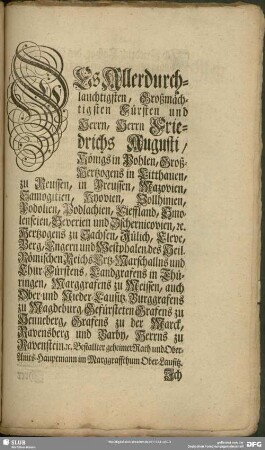 DEs Allerdurch-
lauchtigsten, Großmäch-
tigsten Fürsten und
Herrn, Herrn Frie-
drichs Augusti,
Königs in Pohlen, Groß-
Hertzogens in Litthauen,
zu Reussen, in Preussen, Mazovien,
Samogitien, Kyovien, Vollhinien,
Podolien, Podlachien, Lieffland, Smo-
lenscien, Severien und Zschernicovien, ꝛc.
Hertzogens zu Sachsen, Jülich, Cleve,
Berg, Engern und Westphalen, des Heil.
Römischen Reichs Ertz-Marschallns und
Chur-Fürstens, Landgrafens in Thü-
ringen, Marggrafens zu Meissen, auch
Ober- und Nieder-Lausitz, Burggrafens
zu Magdeburg, Gefürsteten Grafens zu
Henneberg, Grafens zu der Marck,
Ravensberg und Barby, Herrns zu
Ravenstein, ꝛc. Bestallter geheimer Rath und Ober-
Amts-Hauptmann im Marggraffthum Ober-Lausitz,
Ich
SLUB
DFG